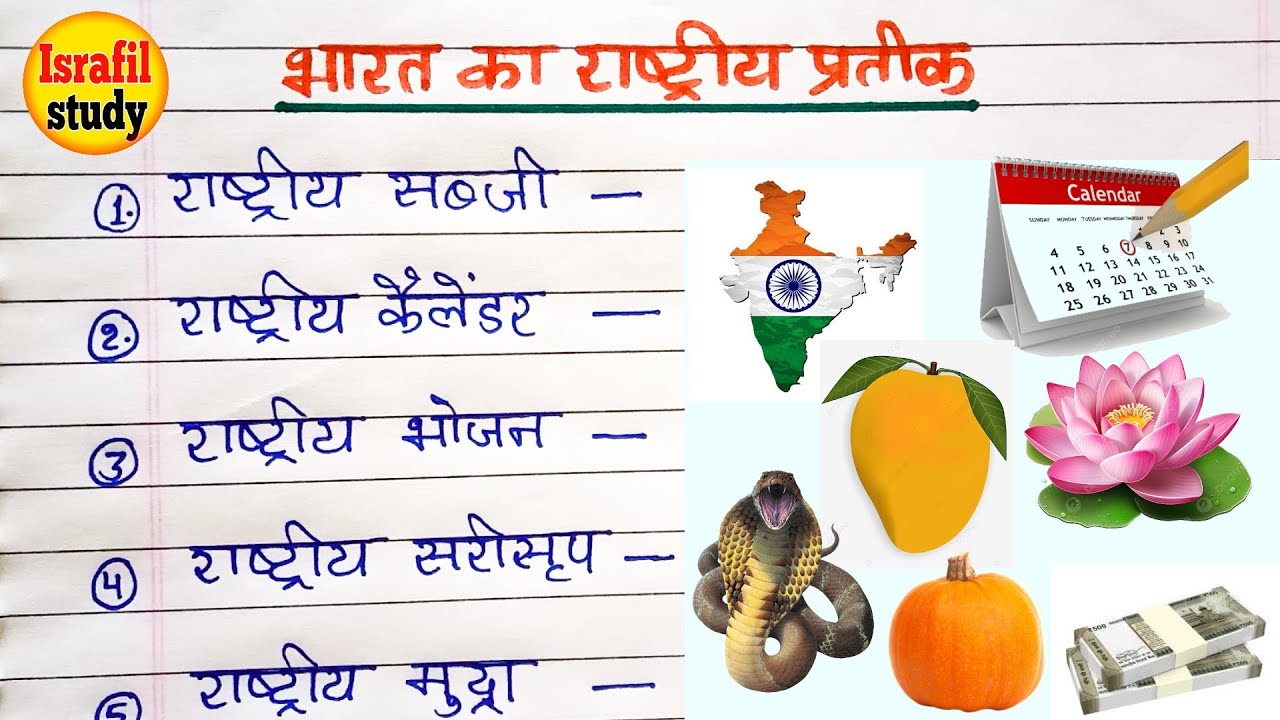 Israfil
study
भारत का राष्ट्रीय प्रतीक
1. राष्ट्रीय सब्जी —
2. राष्ट्रीय कैलेंडर —
3 राष्ट्रीय भोजन —
4 राष्ट्रीय सरीसृप —
5 राष्ट्रीय मुद्रा —
Calendar
SUNDAY MONDAY TUESDAY WEDNESDAY THURSDAY
1 2 3
4 5 6 7 8 9 10
11 12 13 14 15 16 17
18 19 20 21 22 23 24
25 26 27 28 29 30 31
₹500